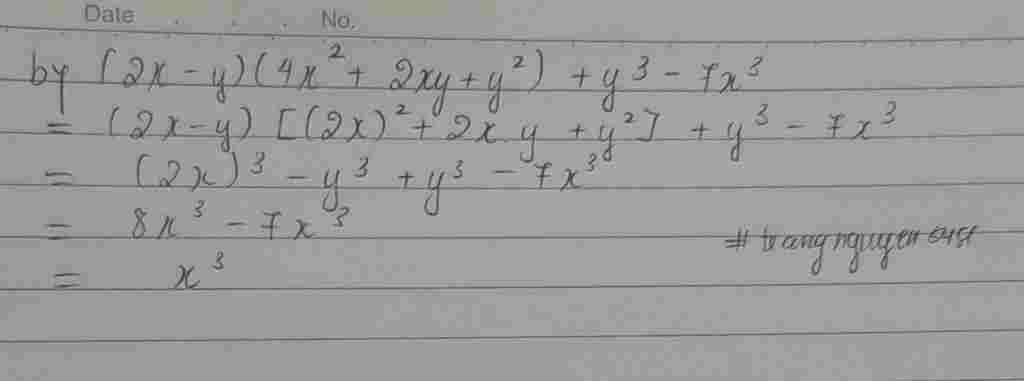 Date No.
b, (2x - y)(4x² + 2xy + y²) + y³ - 7x³
= (2x - y) [(2x)² + 2x.y + y²] + y³ - 7x³
= (2x)³ - y³ + y³ - 7x³
= 8x³ - 7x³
= x³
# trangnguyen